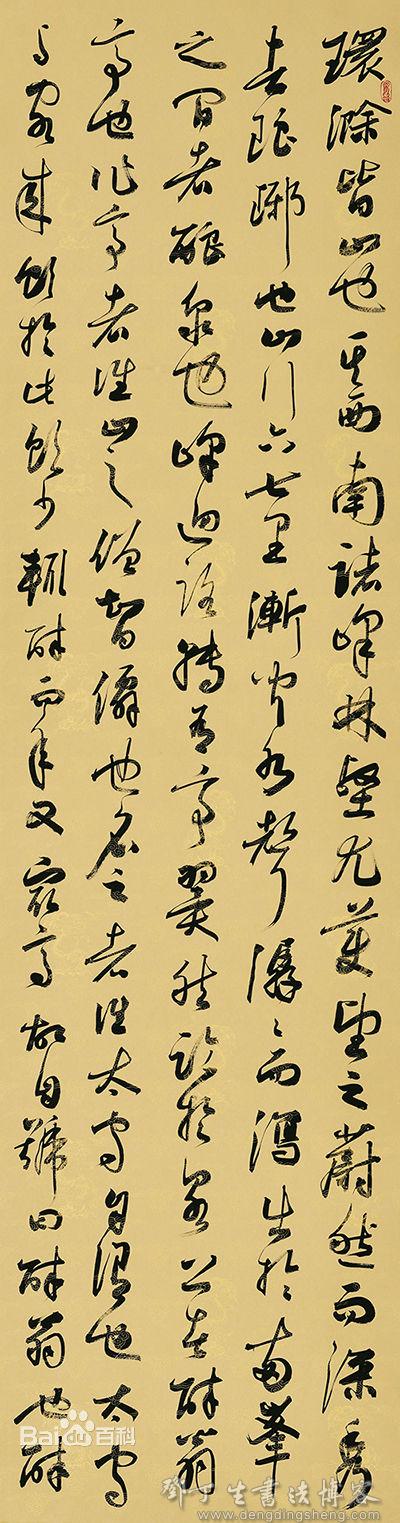 環滁皆山也其西南諸峰林壑尤美望之蔚然而深秀
者琅琊也山行六七里漸聞水聲潺〻而瀉出於兩峯
之間者釀泉也峰迴路轉有亭翼然臨於泉上者醉翁
亭也作亭者誰山之僧智僊也名之者誰太守自謂也太守
與客來飲於此飲少輒醉而年又最高故自號曰醉翁也醉
Bai百科
鄧丁生書法博客
www.dengdingsheng.com